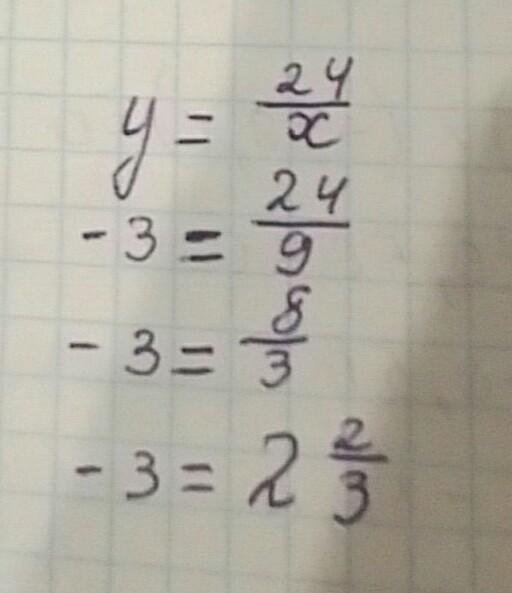 y = 24/x
- 3 = 24/9
- 3 = 8/3
- 3 = 2 2/3